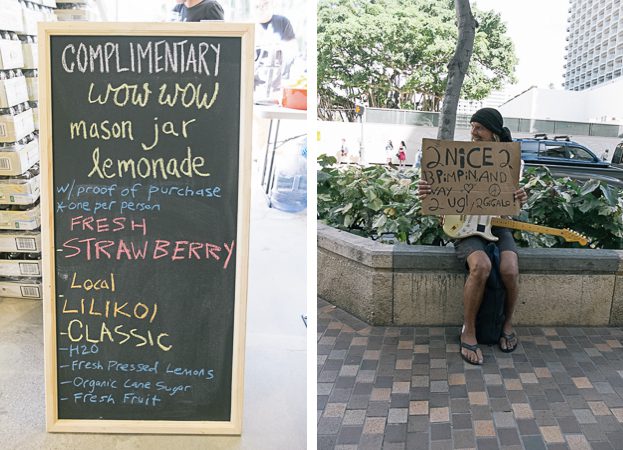 COMPLIMENTARY
WOW WOW
mason jar
lemonade
w/ proof of purchase
*one per person
FRESH
- STRAWBERRY
- Local
LILIKOI
- CLASSIC
- H2O
- Fresh Pressed Lemons
- Organic Cane Sugar
- Fresh Fruit
2 NiCE 2
B PiMPiN AND
WAY 2
2 UGLY 2 GiGALO